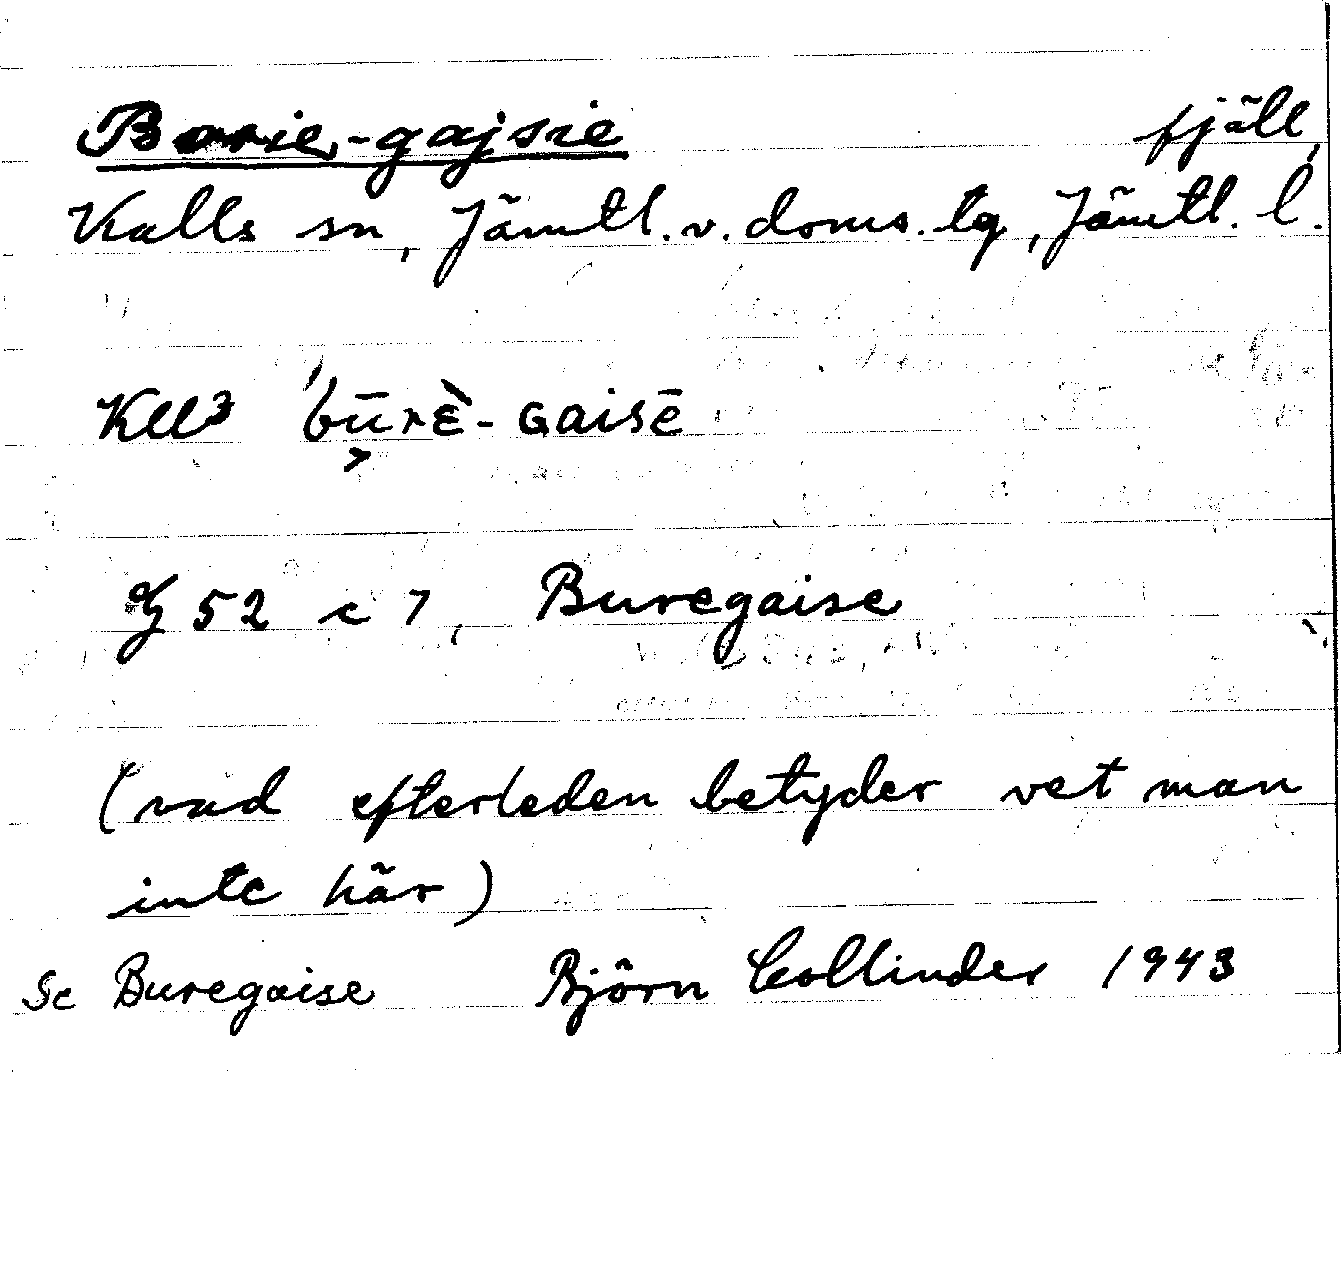 Borie-gajsie fjäll,
Kalls sn, Jämtl. v. doms. tg, Jämtl. l.
Kll3 'būrὲ-Gaisē
Gg 52 c 7, Buregaise
(vad efterleden betyder vet man
inte här)
Se Buregaise Björn Collinder 1943